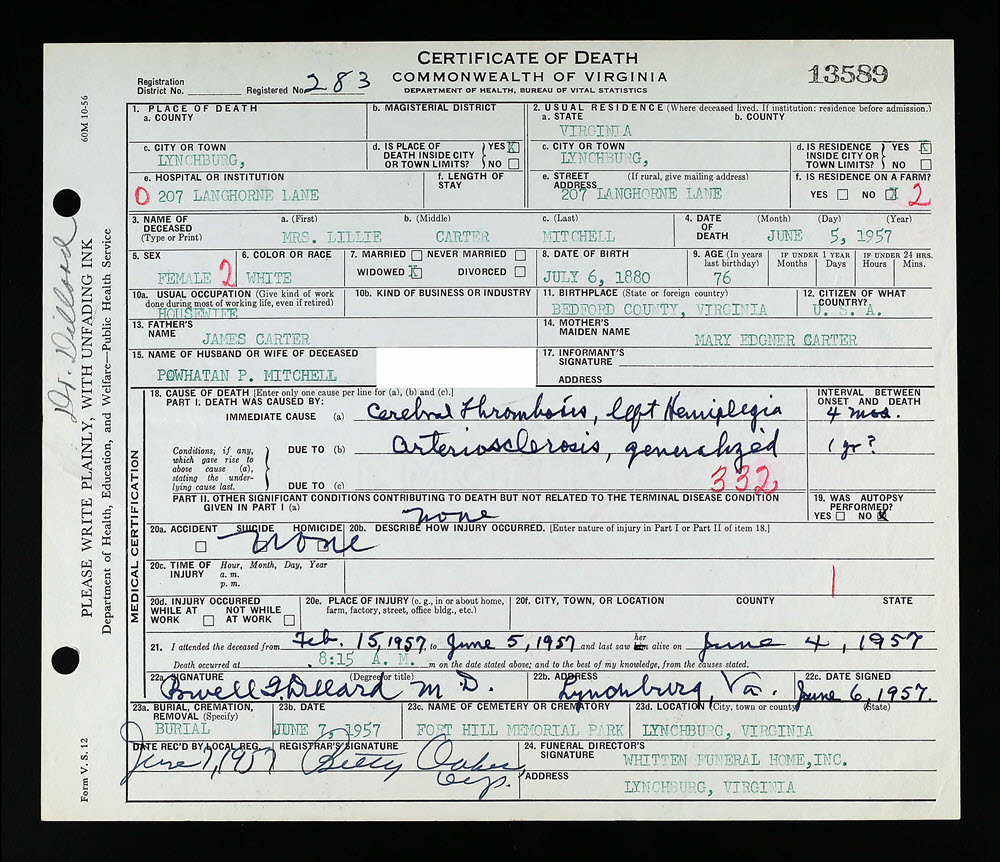 CERTIFICATE OF DEATH
COMMONWEALTH OF VIRGINIA
DEPARTMENT OF HEALTH, BUREAU OF VITAL STATISTICS
13589
Registration District No. Registered No. 283
60M 10-56
PLEASE WRITE PLAINLY, WITH UNFADING INK
Department of Health, Education, and Welfare—Public Health Service
Form V. S. 12
Dr. Dillard
1. PLACE OF DEATH
a. COUNTY
b. MAGISTERIAL DISTRICT
2. USUAL RESIDENCE (Where deceased lived. If institution: residence before admission.)
a. STATE b. COUNTY
VIRGINIA
c. CITY OR TOWN
LYNCHBURG,
d. IS PLACE OF DEATH INSIDE CITY OR TOWN LIMITS? YES X NO
c. CITY OR TOWN
LYNCHBURG,
d. IS RESIDENCE INSIDE CITY OR TOWN LIMITS? YES X NO
e. HOSPITAL OR INSTITUTION
0 207 LANGHORNE LANE
f. LENGTH OF STAY
e. STREET ADDRESS (If rural, give mailing address)
207 LANGHORNE LANE
f. IS RESIDENCE ON A FARM?
YES NO X 2
3. NAME OF DECEASED (Type or Print)
a. (First) b. (Middle) c. (Last)
MRS. LILLIE CARTER MITCHELL
4. DATE OF DEATH (Month) (Day) (Year)
JUNE 5, 1957
5. SEX
FEMALE 2
6. COLOR OR RACE
WHITE
7. MARRIED NEVER MARRIED
WIDOWED X DIVORCED
8. DATE OF BIRTH
JULY 6, 1880
9. AGE (In years last birthday)
76
IF UNDER 1 YEAR Months Days
IF UNDER 24 HRS. Hours Mins.
10a. USUAL OCCUPATION (Give kind of work done during most of working life, even if retired)
HOUSEWIFE
10b. KIND OF BUSINESS OR INDUSTRY
11. BIRTHPLACE (State or foreign country)
BEDFORD COUNTY, VIRGINIA
12. CITIZEN OF WHAT COUNTRY?
U. S. A.
13. FATHER'S NAME
JAMES CARTER
14. MOTHER'S MAIDEN NAME
MARY EDGNER CARTER
15. NAME OF HUSBAND OR WIFE OF DECEASED
POWHATAN P. MITCHELL
17. INFORMANT'S SIGNATURE
ADDRESS
MEDICAL CERTIFICATION
18. CAUSE OF DEATH [Enter only one cause per line for (a), (b) and (c).]
PART I. DEATH WAS CAUSED BY:
INTERVAL BETWEEN ONSET AND DEATH
IMMEDIATE CAUSE (a) Cerebral Thrombosis, left Hemiplegia 4 mos.
Conditions, if any, which gave rise to above cause (a), stating the underlying cause last.
DUE TO (b) Arteriosclerosis, generalized 1 yr?
DUE TO (c) 332
PART II. OTHER SIGNIFICANT CONDITIONS CONTRIBUTING TO DEATH BUT NOT RELATED TO THE TERMINAL DISEASE CONDITION GIVEN IN PART I (a)
none
19. WAS AUTOPSY PERFORMED?
YES NO X
20a. ACCIDENT SUICIDE HOMICIDE
none
20b. DESCRIBE HOW INJURY OCCURRED. [Enter nature of injury in Part I or Part II of item 18.]
20c. TIME OF INJURY Hour, Month, Day, Year
a. m.
p. m.
20d. INJURY OCCURRED
WHILE AT WORK NOT WHILE AT WORK
20e. PLACE OF INJURY (e. g., in or about home, farm, factory, street, office bldg., etc.)
20f. CITY, TOWN, OR LOCATION COUNTY STATE
21. I attended the deceased from Feb. 15, 1957, to June 5, 1957 and last saw her him alive on June 4, 1957
Death occurred at 8:15 A. M. m on the date stated above; and to the best of my knowledge, from the causes stated.
22a. SIGNATURE (Degree or title)
Powell G. Dillard M. D.
22b. ADDRESS
Lynchburg, Va.
22c. DATE SIGNED
June 6, 1957.
23a. BURIAL, CREMATION, REMOVAL (Specify)
BURIAL
23b. DATE
JUNE 7, 1957
23c. NAME OF CEMETERY OR CREMATORY
FORT HILL MEMORIAL PARK
23d. LOCATION (City, town or county) (State)
LYNCHBURG, VIRGINIA
DATE REC'D BY LOCAL REG.
June 7, 1957
REGISTRAR'S SIGNATURE
Betty Oakes
24. FUNERAL DIRECTOR'S SIGNATURE
WHITTEN FUNERAL HOME, INC.
ADDRESS
LYNCHBURG, VIRGINIA